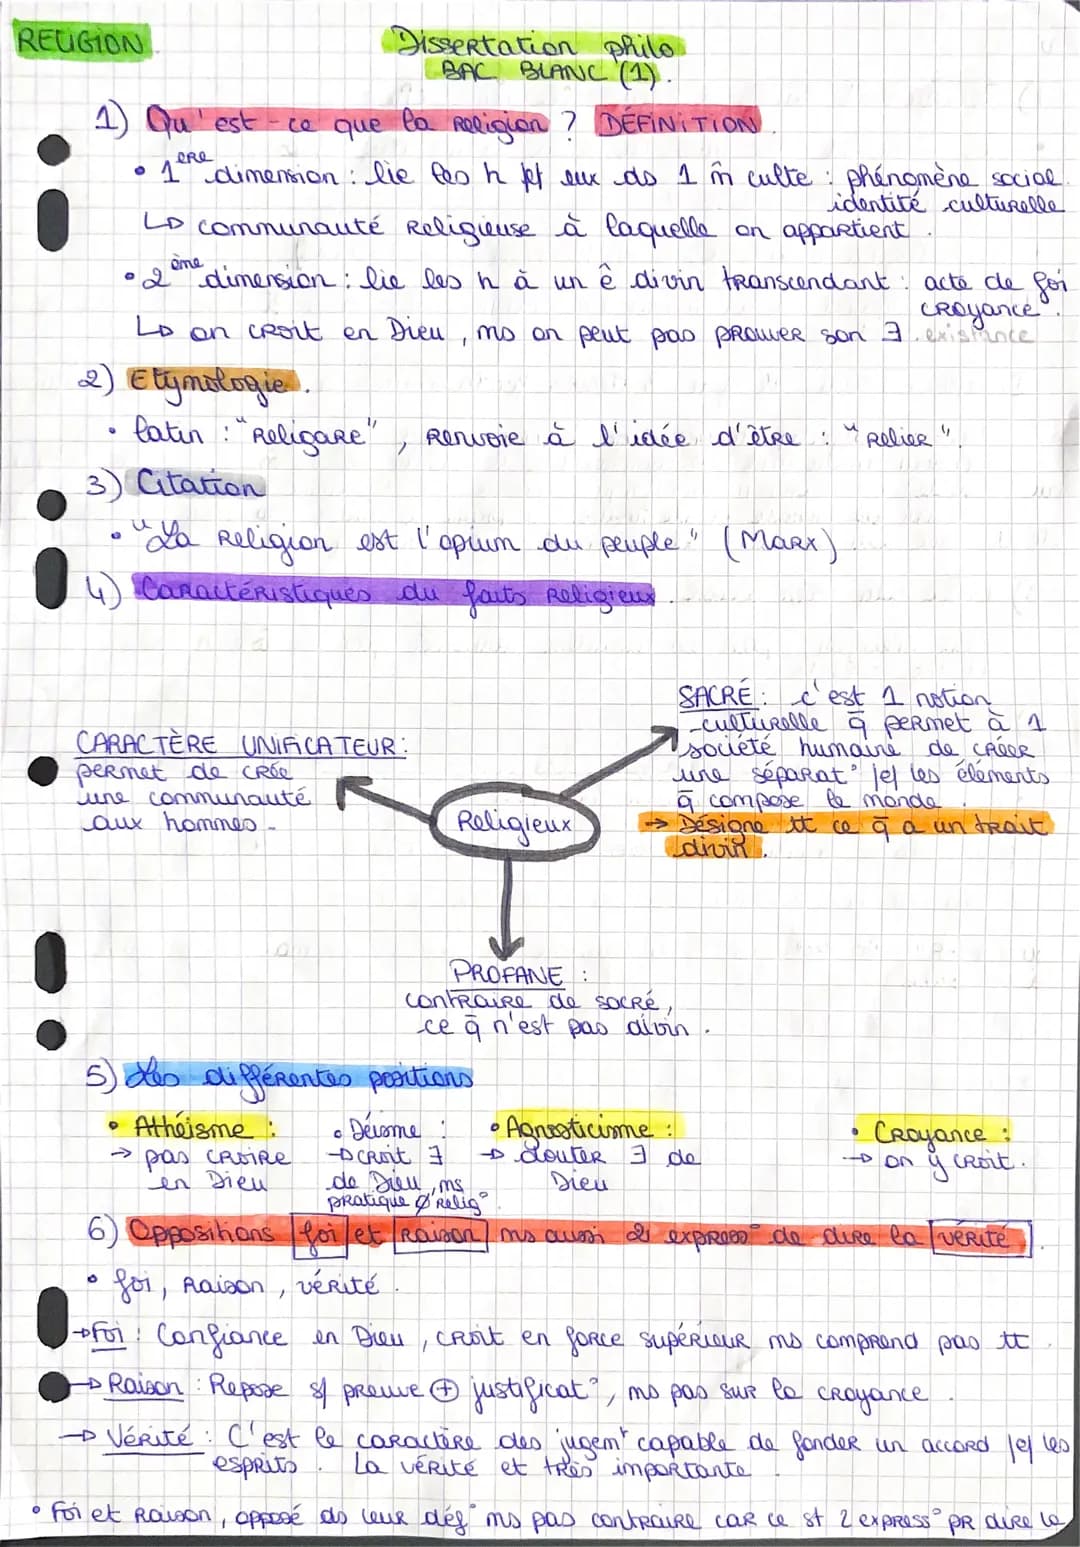 RELIGION
Dissertation philo
BAC BLANC (1).
1) Qu'est-ce que la religion ? DÉFINITION.
• 1ERE dimension : lie les h /et/ eux ds 1 m̂ culte : phénomène social.
identité culturelle
↳ communauté religieuse à laquelle on appartient.
• 2ème dimension : lie les h à un ê divin transcendant : acte de foi
CROyance.
↳ on croit en Dieu, ms on peut pas prouver son ∃. existence
2) Etymologie.
• latin : "Religare", renvoie à l'idée d'être : "relier".
3) Citation
• "La religion est l'opium du peuple" (Marx).
4) Caractéristiques du faits religieux.
SACRÉ : c'est 1 notion
culturelle q̄ permet à 1
société humaine de créer
une séparat° /e/ les éléments
q̄ compose le monde.
→ Désigne tt ce q̄ a un trait
divin.
CARACTÈRE UNIFICATEUR :
permet de crée
une communauté
aux hommes.
Religieux
PROFANE :
contraire de sacré,
ce q̄ n'est pas divin.
5) Les différentes positions
• Athéisme : • Déisme : • Agnosticisme : • Croyance :
→ pas croire → croit ∃ → douter ∃ de → on y croit.
en Dieu de Dieu, ms Dieu
pratique Ø relig°.
6) Oppositions foi et Raison ms aussi 2 express° de dire la vérité.
• foi, Raison, vérité.
→ Foi : Confiance en Dieu, croit en force supérieur ms comprend pas tt.
→ Raison : Repose s/ preuve ⊕ justificat°, ms pas sur la croyance.
→ Vérité : C'est le caractère des jugemt capable de fonder un accord /e/ les
esprits. La vérité et très importante.
• Foi et Raison, opposé ds leur déf° ms pas contraire car ce st 2 express° PR dire la